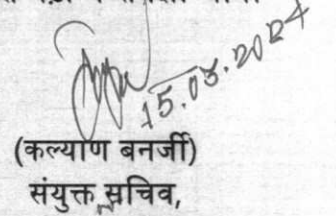 15.03.2024
(कल्याण बनर्जी)
संयुक्त सचिव,